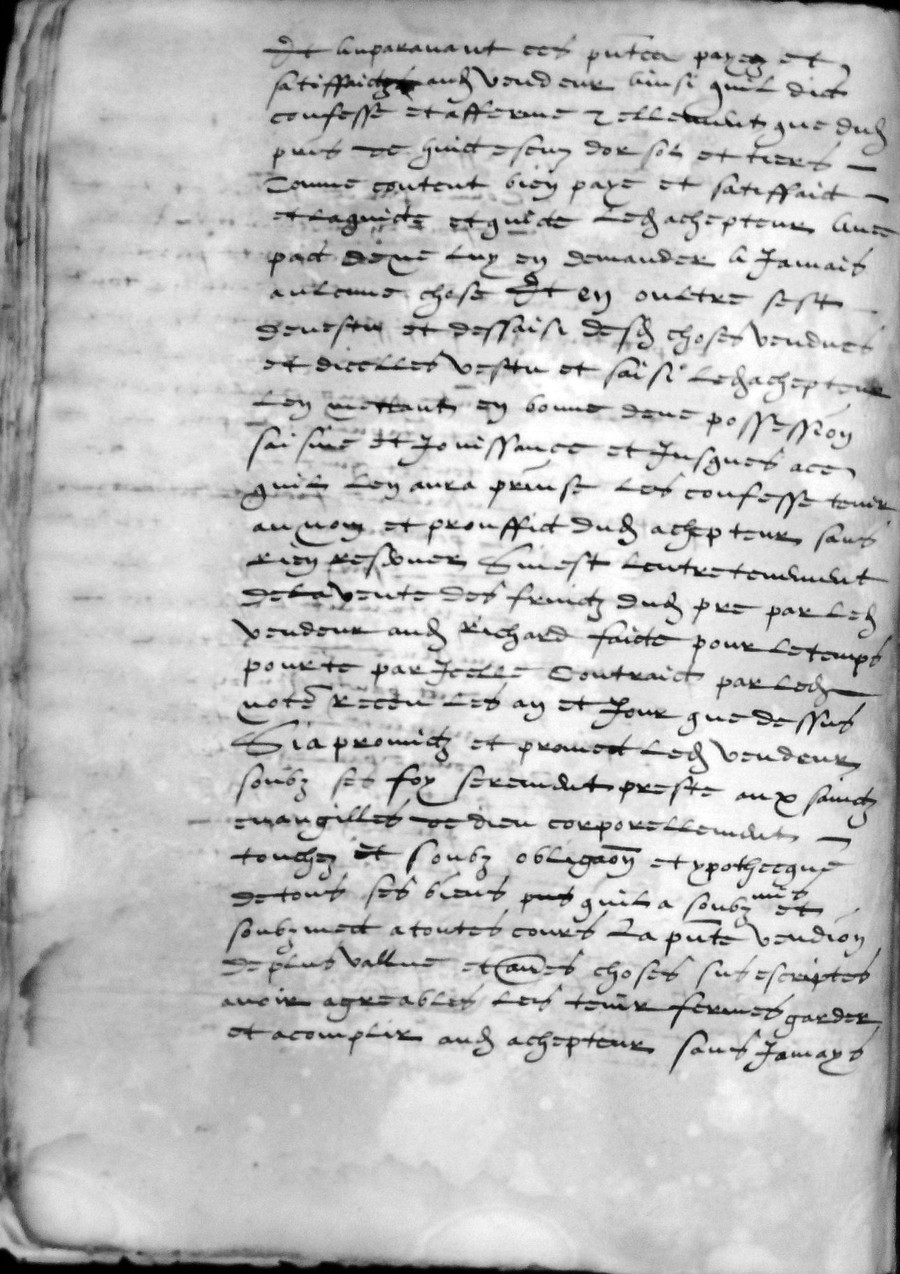 Et auparavant ces pntes payez et
satiffaictz aud vendeur ainsi quil dict
confesse et afferme tellement que dud
pris de huict escuz dor sol et tiers
Comme content bien paye et satiffaict
et la quicte et quicte led achepteur avec
pact de ne luy en demander a Jamais
aulcune chose Et en oultre sest
devestu et dessaisi desd choses vendues
et dicelles vestu et saisi led achepteur
len mettant en bonne deue possession
saisine et Jouissance et Jusques a ce
quil len aura prinse les confesse tenir
au nom et prouffict dud achepteur sans
rien reserver Si nest lentretenement
de la vente des fruictz dud pre par led
vendeur aud Richard faicte pour le temps
porte par Icelle Contraict par led
note receu les an et Jour que dessus
Si a promictz et promect led vendeur
soubz ses foy serement preste aux sainctz
evangilles de dieu corporellement
touchez et soubz obligaon et ypothecque
de tous ses biens quil a soubzmis et
soubzmect a toutes cours la pnte vendion
de plus vallue et aues choses susescriptes
avoir agreables les tenir fermes garder
et acomplir aud achepteur sans Jamays